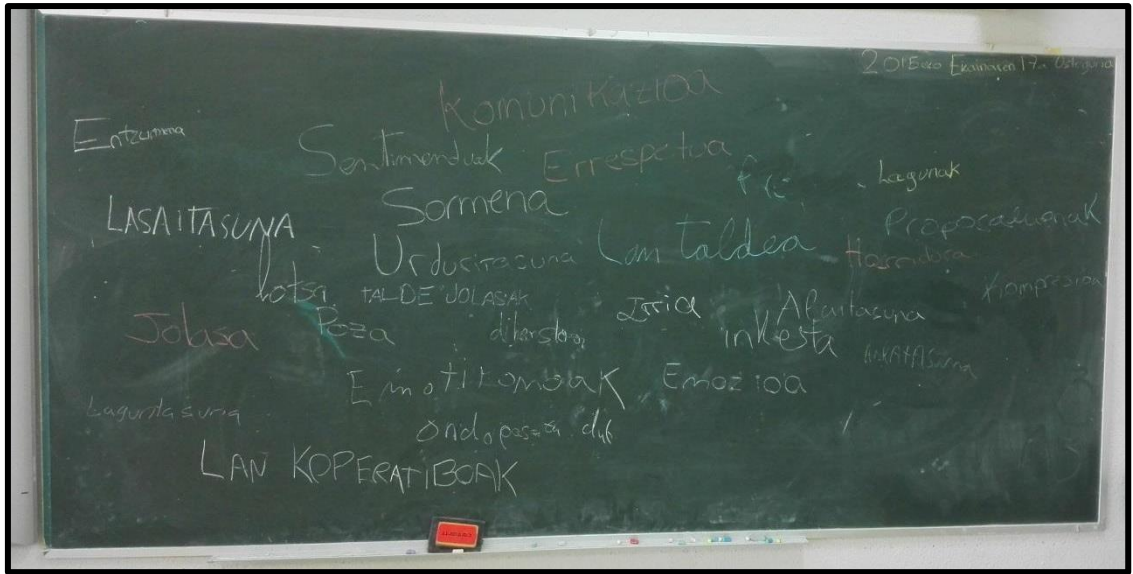 2015eko Ekainaren 17a Osteguna
Komunikazioa
Entzumena
Sentimenduak Errespetua
Lagunak
Sormena
LASAITASUNA
Urduritasuna Lan taldea
Lotsa
TALDE JOLASAK
Irria
Alaitasuna
Konpresioa
Jolasa
Poza
inkesta
Emotikonoak Emozioa
Laguntasuna
ondo pasatu dut
LAN KOPERATIBOAK